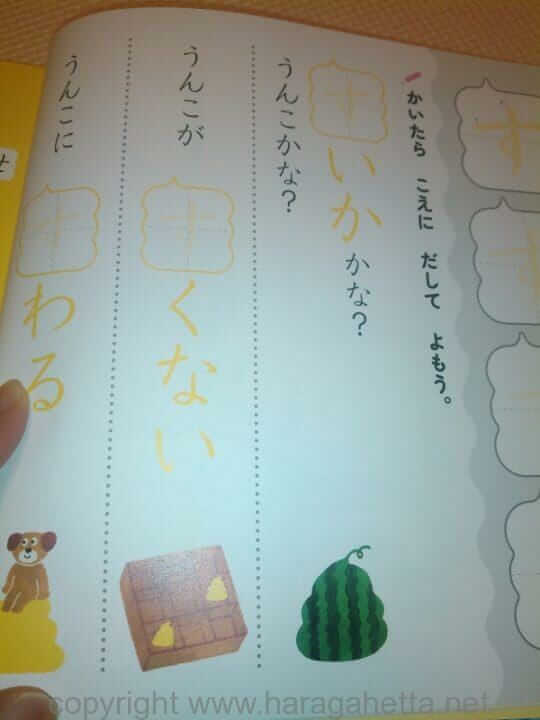 かいたら こえに だして よもう。
すいかかな?
うんこかな?
うんこが
すくない
うんこに
すわる
す
す
せ
copyright www.haragahetta.net